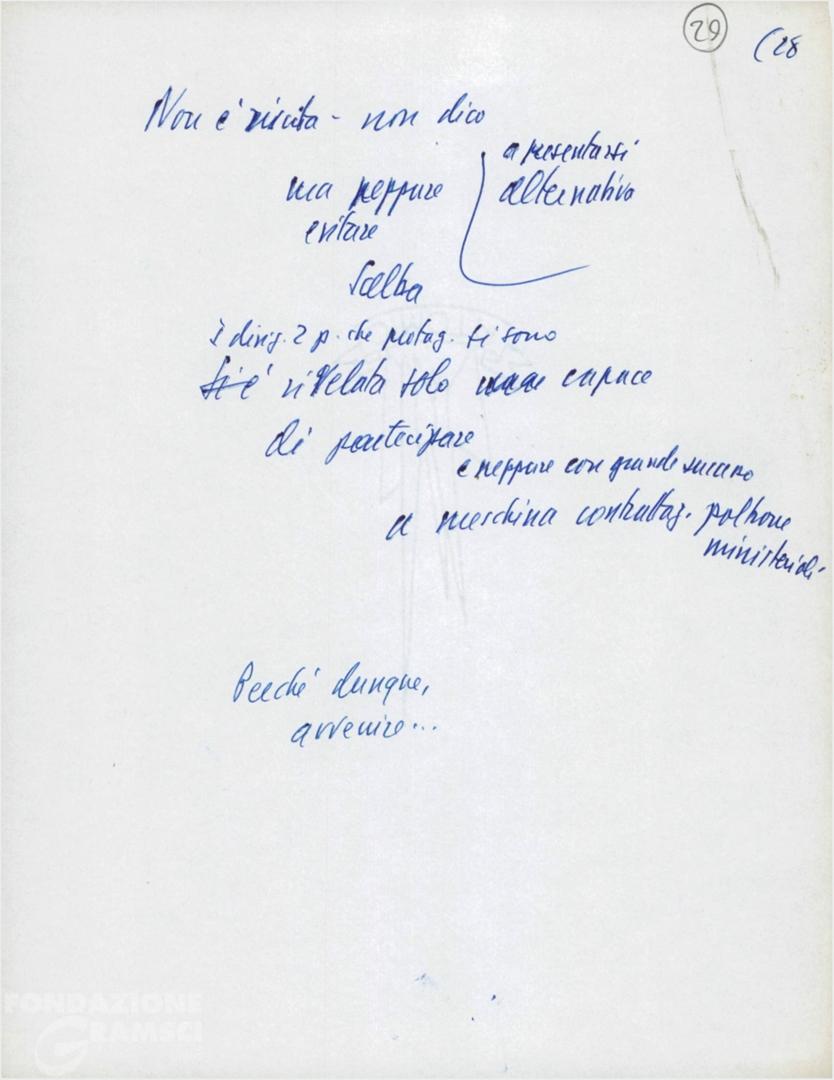 29
(28
Non è riuscita - non dico
a presentarsi
alternativa
ma neppure
evitare
Scelba
I dirig. 2 p. che protag. si sono
Si è rivelata solo capace
di partecipare
e neppure con grande successo
a meschina contrattaz. poltrone
ministeriali
Perché dunque,
avvenire...
FONDAZIONE
GRAMSCI